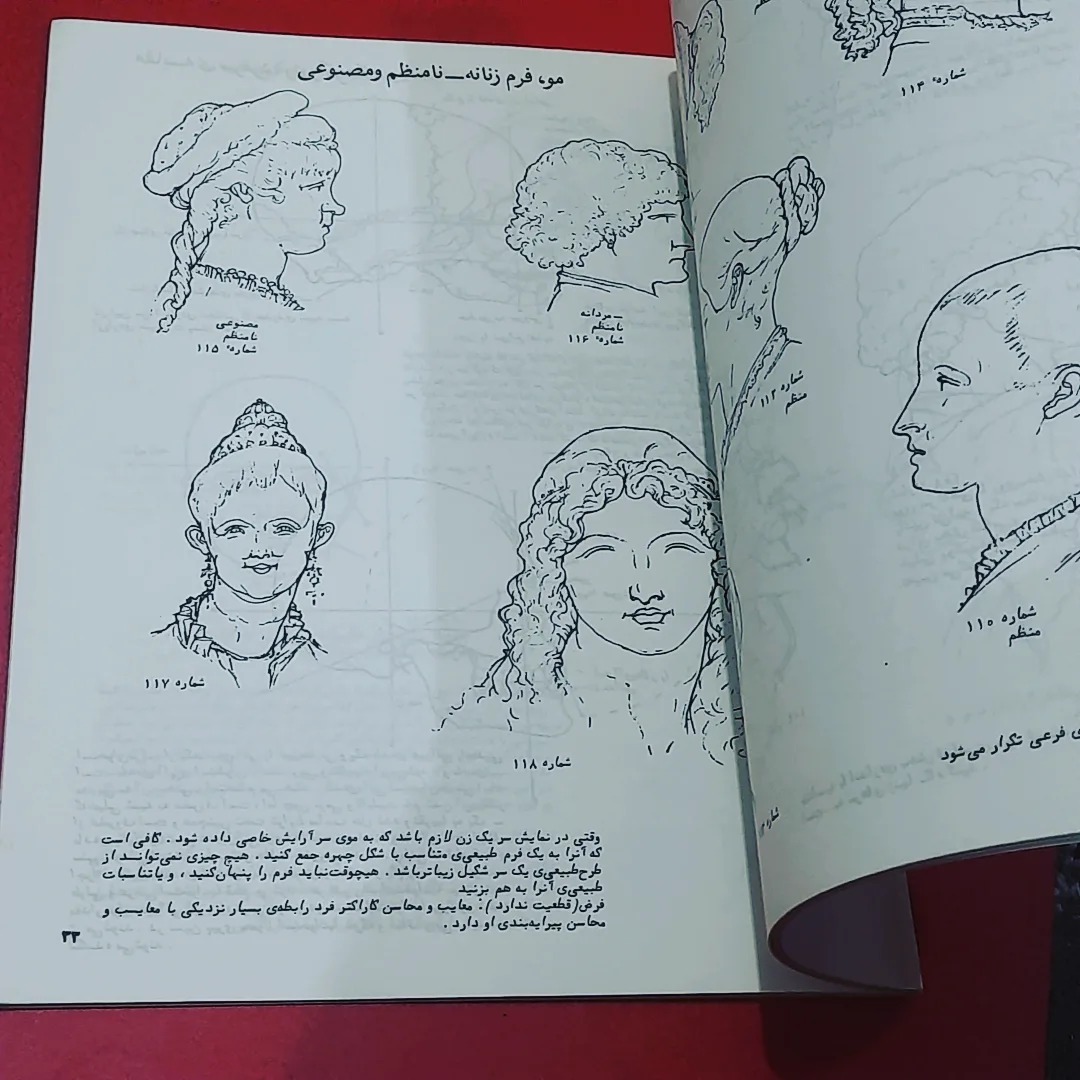 مو، فرم زنانه—نامنظم ومصنوعی
مصنوعی
نامنظم
شماره ۱۱۵
—مردانه
نامنظم
شماره ۱۱۶
شماره ۱۱۷
شماره ۱۱۸
وقتی در نمایش سر یک زن لازم باشد که به موی سر آرایش خاصی داده شود . کافی است
که آنرا به یک فرم طبیعی‌ی متناسب با شکل چهره جمع کنید . هیچ چیزی نمی‌توانـد از
طرح‌طبیعی‌ی یک سر شکیل زیباترباشد . هیچوقت‌نباید فرم را پنهان‌کنید ، و یاتناسبات
طبیعی‌ی آنرا به هم بزنید
فرض( قطعیت ندارد ) : معایب و محاسن کاراکتر فرد رابطه‌ی بسیار نزدیکی با معایب و
محاسن پیرایه‌بندی او دارد .
۳۳
شماره ۱۱۴
شماره ۱۱۲
منظم
شماره ۱۱۰
منظم
فرعی تکرار می‌شود